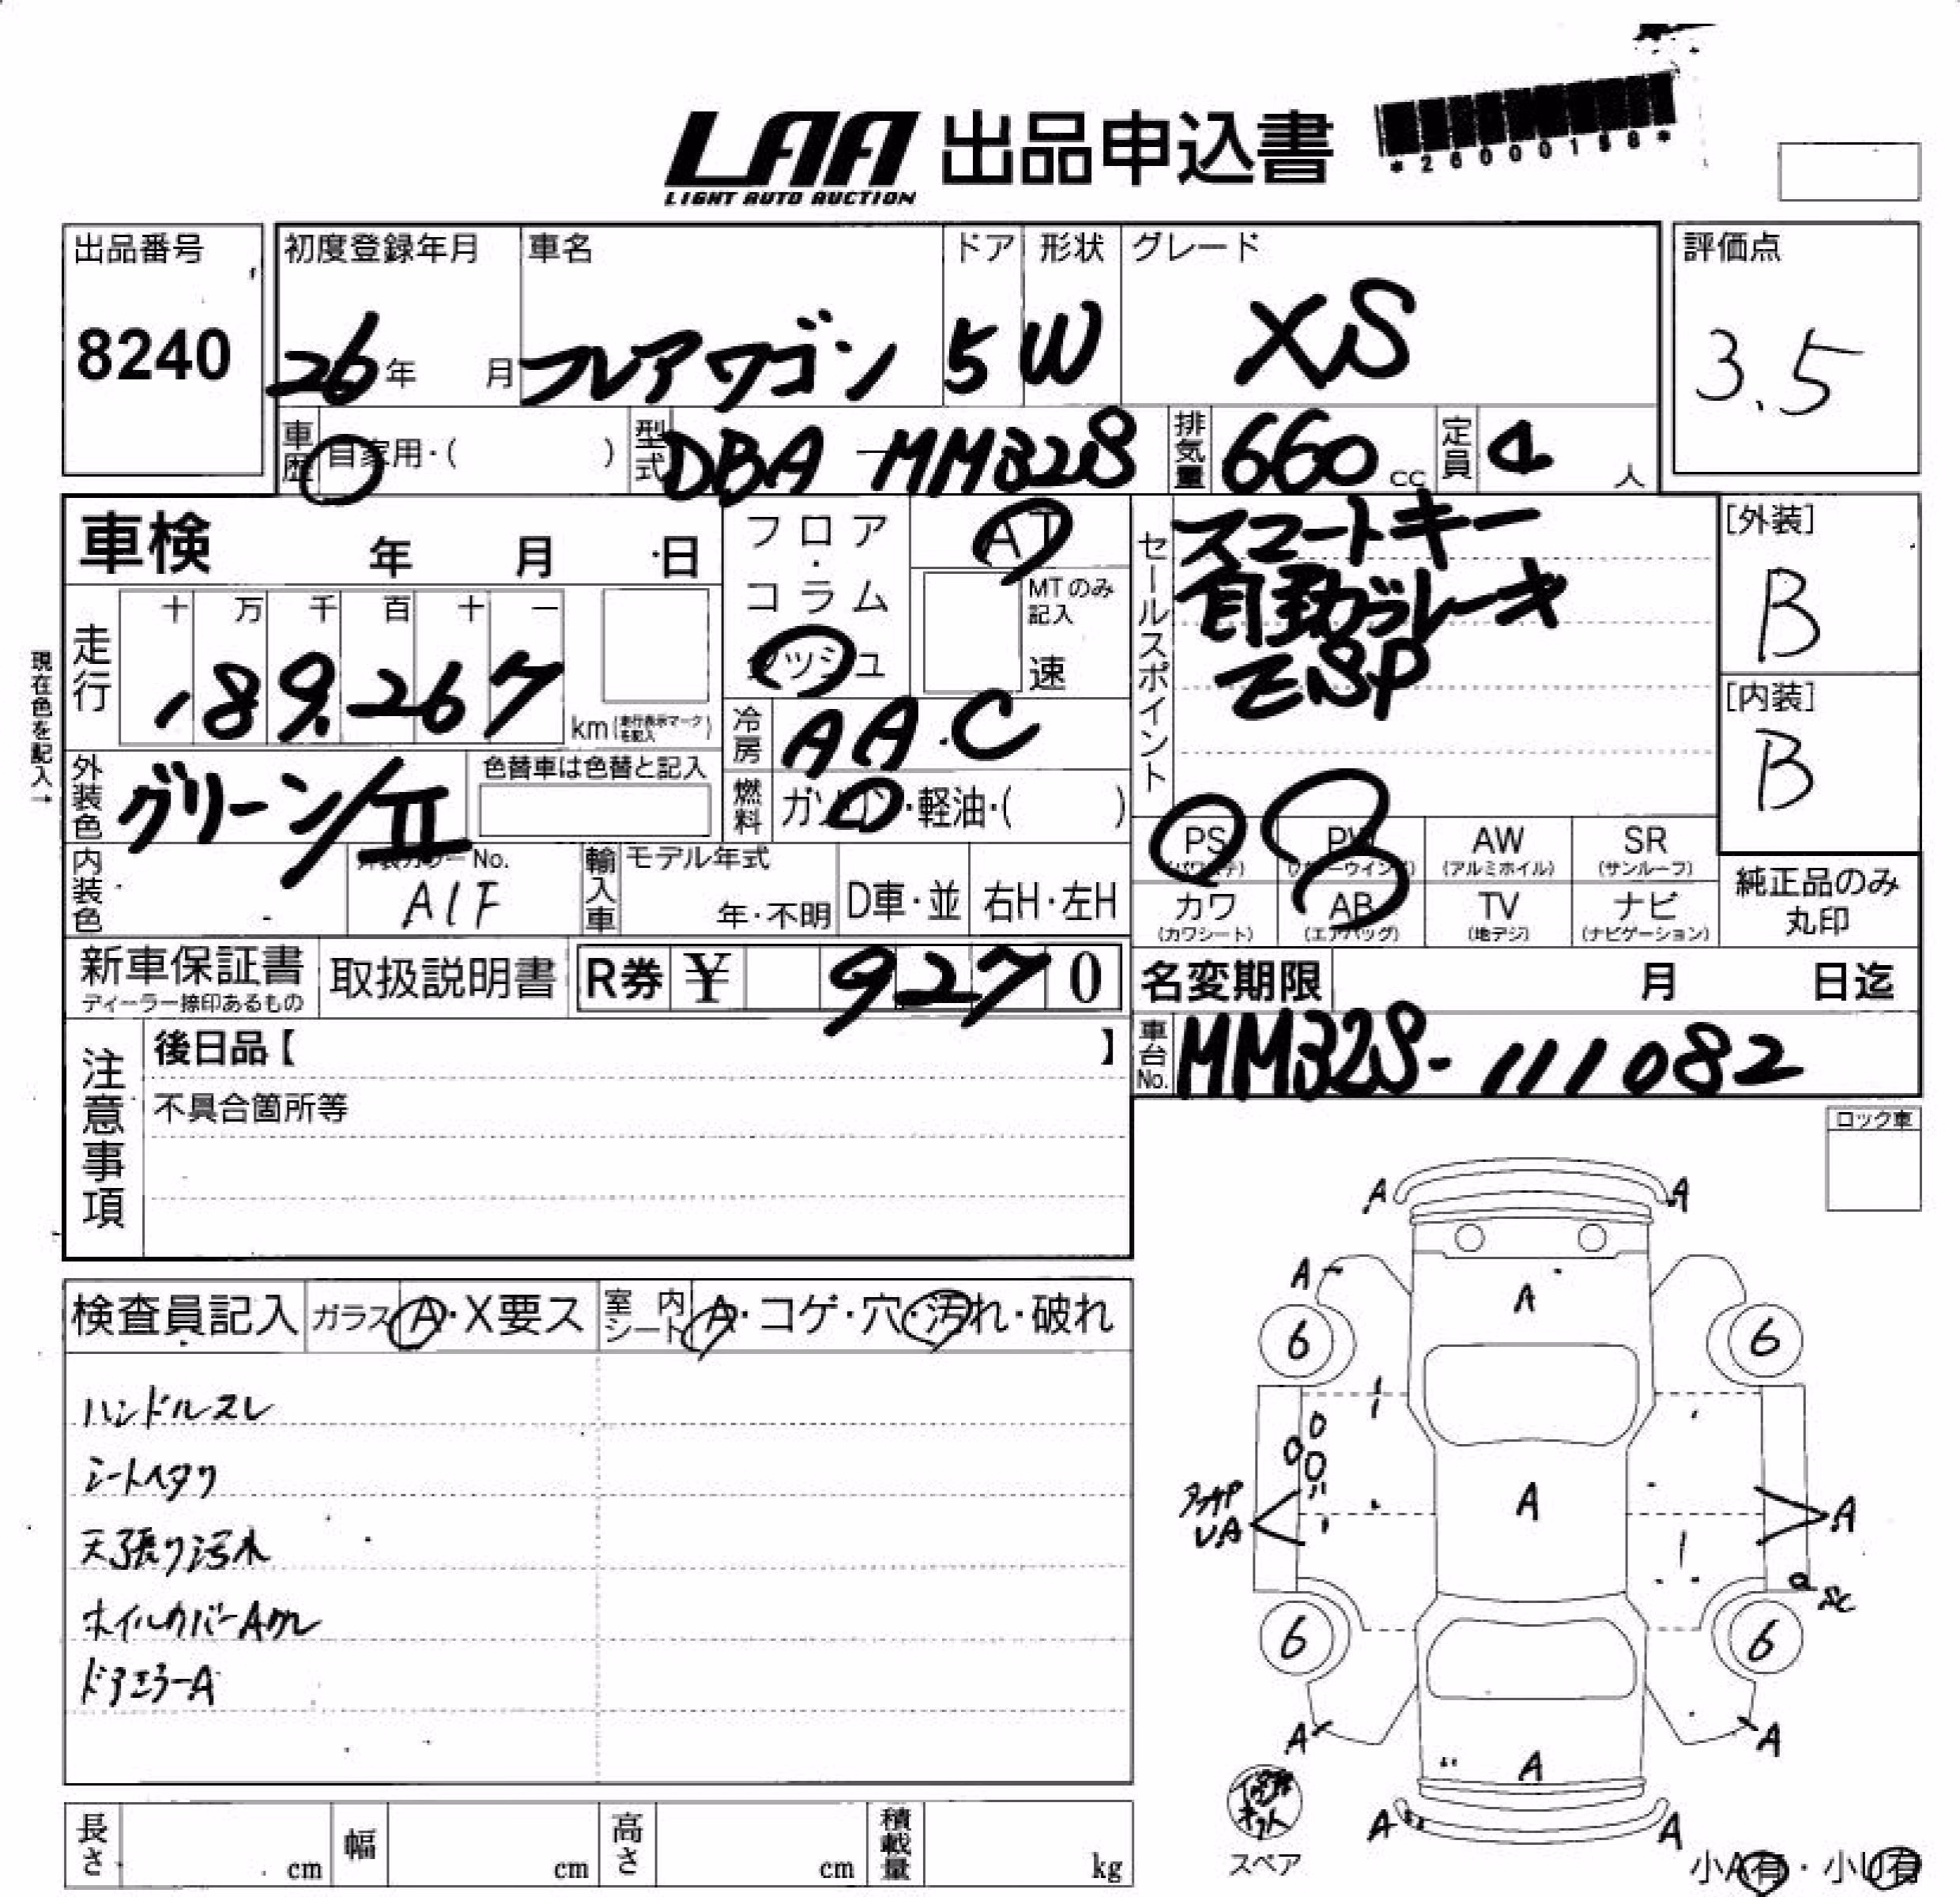 LAA 出品申込書
LIGHT AUTO AUCTION
*26000188*
出品番号
8240
初度登録年月
26年 月
車名
フレアワゴン
ドア
5
形状
W
グレード
XS
評価点
3.5
車歴 自家用・( )
型式 DBA-MM32S
排気量 660 cc
定員 4 人
車検 年 月 日
フロア・コラム
AT
MTのみ記入
速
セールスポイント
スマートキー
自動ブレーキ
ESP
[外装]
B
[内装]
B
現在色を記入→
走行 十 万 千 百 十 一
189,267
km(走行表示マークを記入)
冷房 AAC
外装色 グリーン/II
色替車は色替と記入
燃料 ガソリン・軽油・( )
PS (パワステ)
PW (パワーウインド)
AW (アルミホイル)
SR (サンルーフ)
カワ (カワシート)
AB (エアバッグ)
TV (地デジ)
ナビ (ナビゲーション)
純正品のみ丸印
内装色
外装カラーNo.
A1F
輸入車 モデル年式
年・不明
D車・並
右H・左H
新車保証書
ディーラー捺印あるもの
取扱説明書
R券 ¥ 9270
名変期限 月 日迄
車台No. MM32S-111082
注意事項
後日品【 】
不具合箇所等
ロック車
検査員記入
ガラス A・X要ス
室内シート A・コゲ・穴・汚れ・破れ
ハンドルスレ
シートヘタリ
天張り汚れ
ホイルカバーAワレ
ドアミラーA
A A
A
A
6 6
A
A
A
SC
6 6
A A
A
A A
スペア
小A有・小U有
長さ cm
幅 cm
高さ cm
積載量 kg